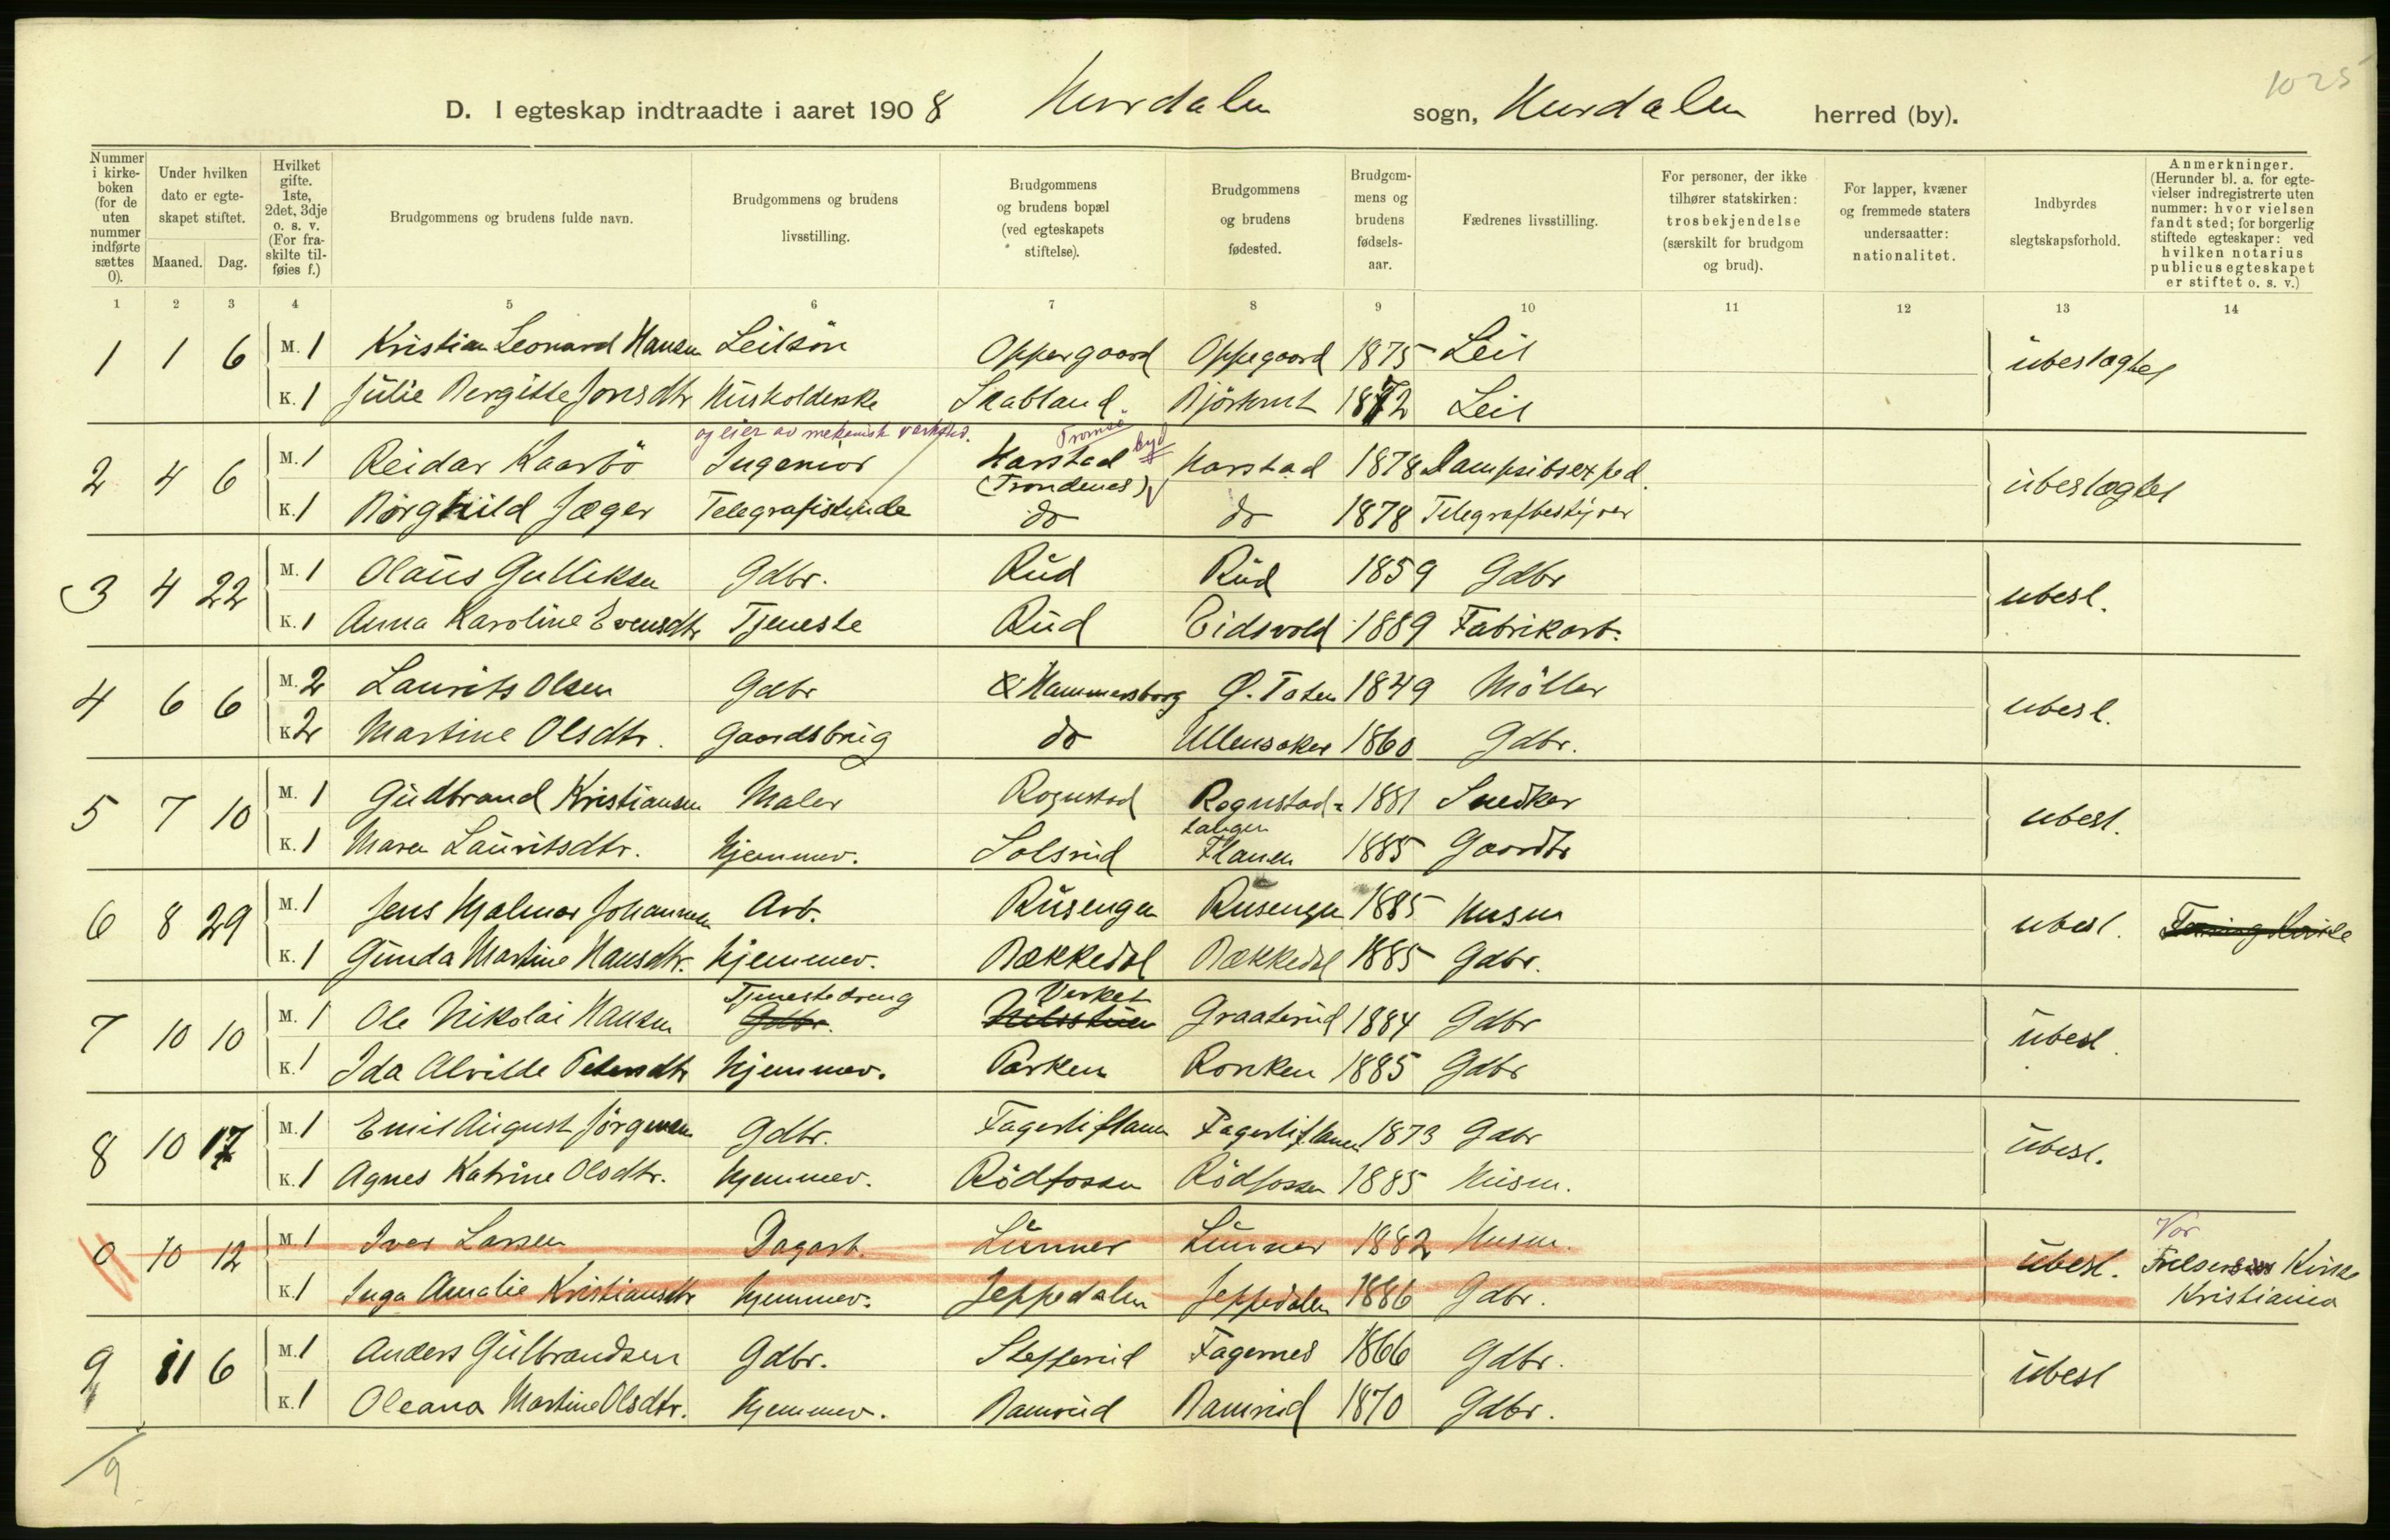 1025
D. I egteskap indtraadte i aaret 1908 Hurdalen sogn, Hurdalen herred (by).
Nummer i kirke-boken (for de uten nummer indførte sættes 0).
Under hvilken dato er egte-skapet stiftet.
Maaned. Dag.
Hvilket gifte. 1ste, 2det, 3dje o. s. v. (For fra-skilte til-føies f.)
Brudgommens og brudens fulde navn.
Brudgommens og brudens livsstilling.
Brudgommens og brudens bopæl (ved egteskapets stiftelse).
Brudgommens og brudens fødested.
Brudgom-mens og brudens fødsels-aar.
Fædrenes livsstilling.
For personer, der ikke tilhører statskirken: trosbekjendelse (særskilt for brudgom og brud).
For lapper, kvæner og fremmede staters undersaatter: nationalitet.
Indbyrdes slegtskapsforhold.
Anmerkninger. (Herunder bl. a. for egte-vielser indregistrerte uten nummer: hvor vielsen fandt sted; for borgerlig stiftede egteskaper: ved hvilken notarius publicus egteskapet er stiftet o. s. v.)
1 2 3 4 5 6 7 8 9 10 11 12 13 14
1 1 6 M. 1 Kristian Leonard Hansen Leilsön Oppergaard Oppegaard 1875 Leil ubeslægtet
K. 1 Julie Bergitte Jonsdtr Husholderske Skabland. 1872 Leil
og eier av mekanisk verksted. Tromsö byd
2 4 6 M. 1 Reidar Kaarbö Ingeniör Harstad Harstad 1878 Dampsibsexped. ubeslægtet
(Trondenes)
K. 1 Borghild Jæger Telegrafistinde do do 1878 Telegrafbestyrer
3 4 22 M. 1 Olaus Gulliksen Gdbr. Rud Rud 1859 Gdbr ubesl.
K. 1 Anna Karoline Evensdtr Tjeneste Rud Eidsvold 1889 Fabrikarb.
4 6 6 M. 2 Laurits Olsen Gdbr Hammersborg Ø. Toten 1849 Möller ubesl.
K. 2 Martine Olsdtr. Gaardsbrug do Ullensaker 1860 Gdbr.
5 7 10 M. 1 Gudbrand Kristiansen Maler Rognstad Rognstad- 1881 Snedker ubesl.
K. 1 Maren Lauritsdtr. Hjemmev. Solsrud Flanen 1885 Gaardbr
6 8 29 M. 1 Jens Hjalmar Johannesen Arb. Rusengen Rusengen 1885 Husm ubesl.
K. 1 Gunda Martine Hansdtr. Hjemmev. Bækkedal Bækkedal 1885 Gdbr.
Tjenestedreng Verket
7 10 10 M. 1 Ole Nikolai Hansen Gdbr. Nilsstuen Graaterud 1884 Gdbr ubesl.
K. 1 Ida Alvilde Petersdtr Hjemmev. Parken Ronken 1885 Gdbr
8 10 17 M. 1 Emil August Jörgensen Gdbr. Fagerliflanen Fagerliflanen 1873 Gdbr ubesl.
K. 1 Agnes Katrine Olsdtr. Hjemmev. Rödfossen Rödfossen 1885 Husm.
Vor
0 10 12 M. 1 Iver Larsen Dagarb. Lunner Lunner 1882 Husm. ubesl. Frelsers Kirke
K. 1 Inga Amalie Kristiansdtr Hjemmev. Jeppedalen Jeppedalen 1886 Gdbr. Kristiania
9 11 6 M. 1 Anders Gulbrandsen Gdbr. Stefferud Fagernes 1866 Gdbr. ubesl
K. 1 Oleana Martine Olsdtr. Hjemmev. Ramrud Ramrud 1870 Gdbr.
9